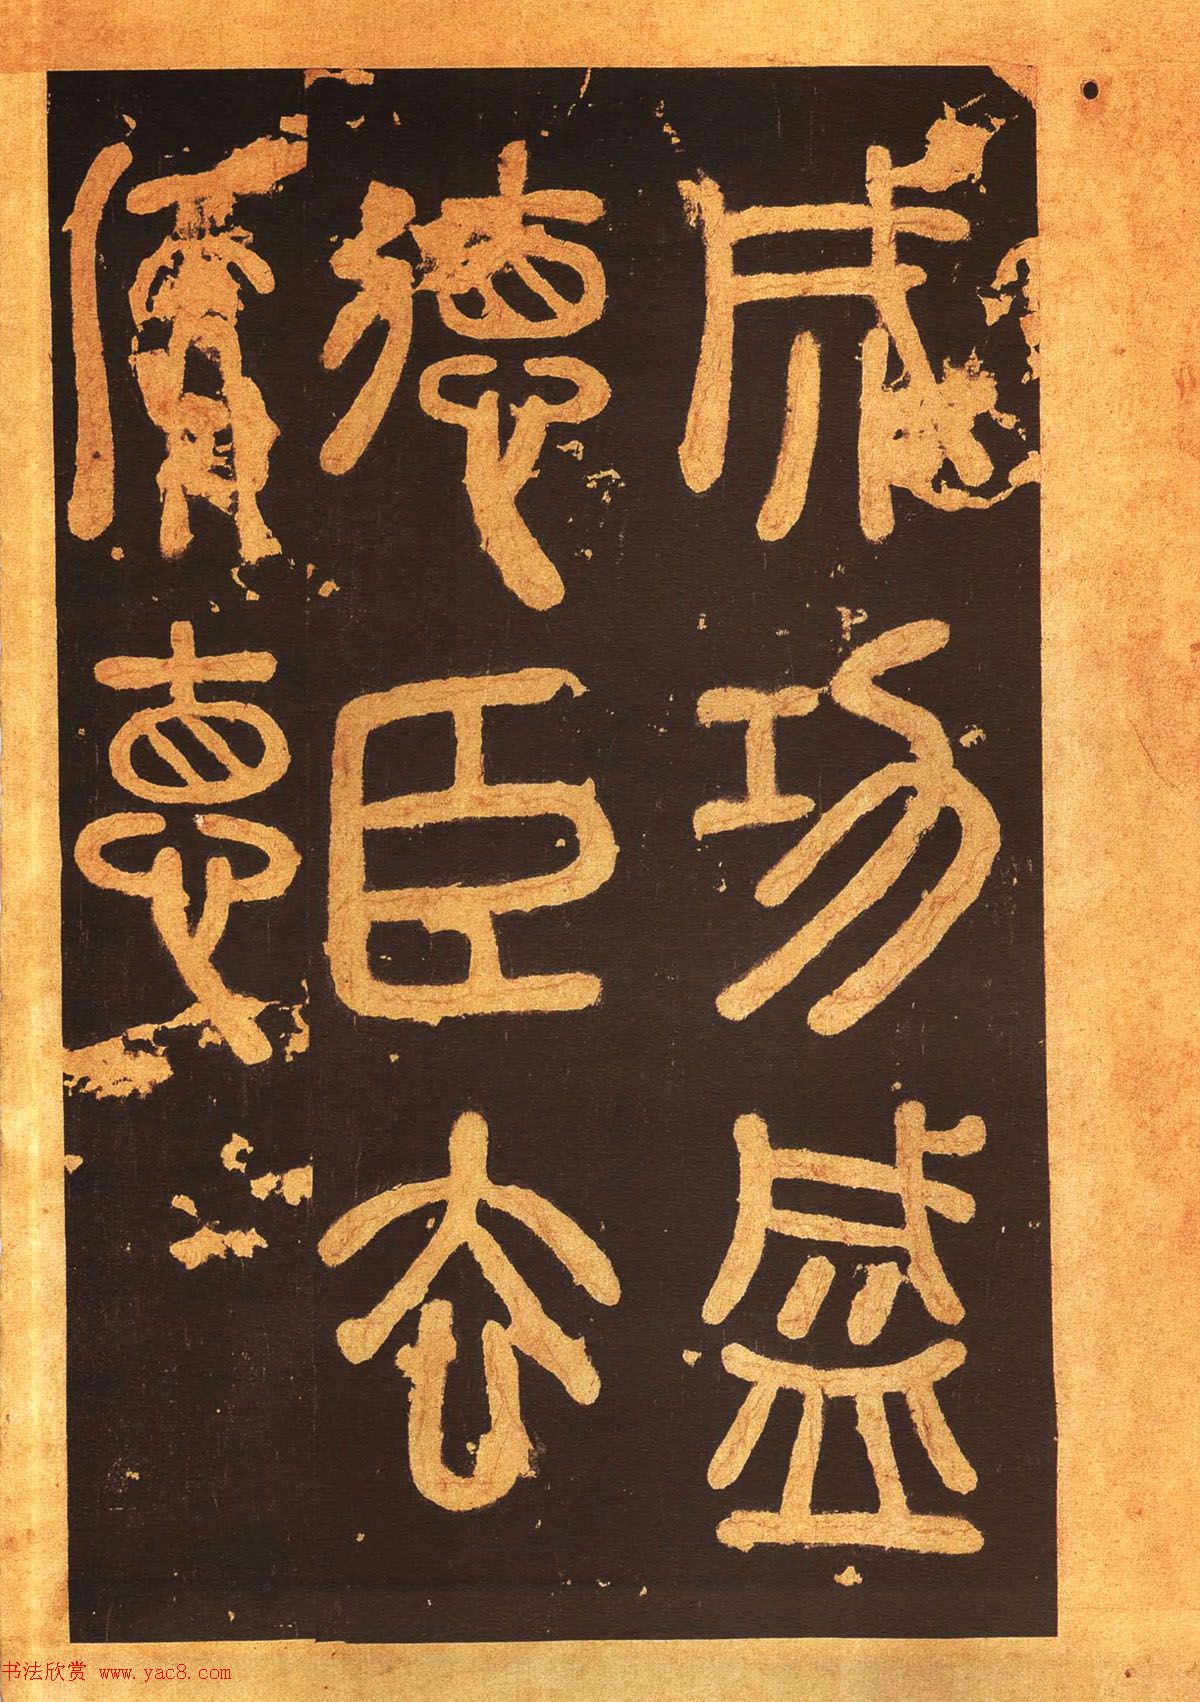 成功盛
德臣去
悳
书法欣赏 www.yac8.com